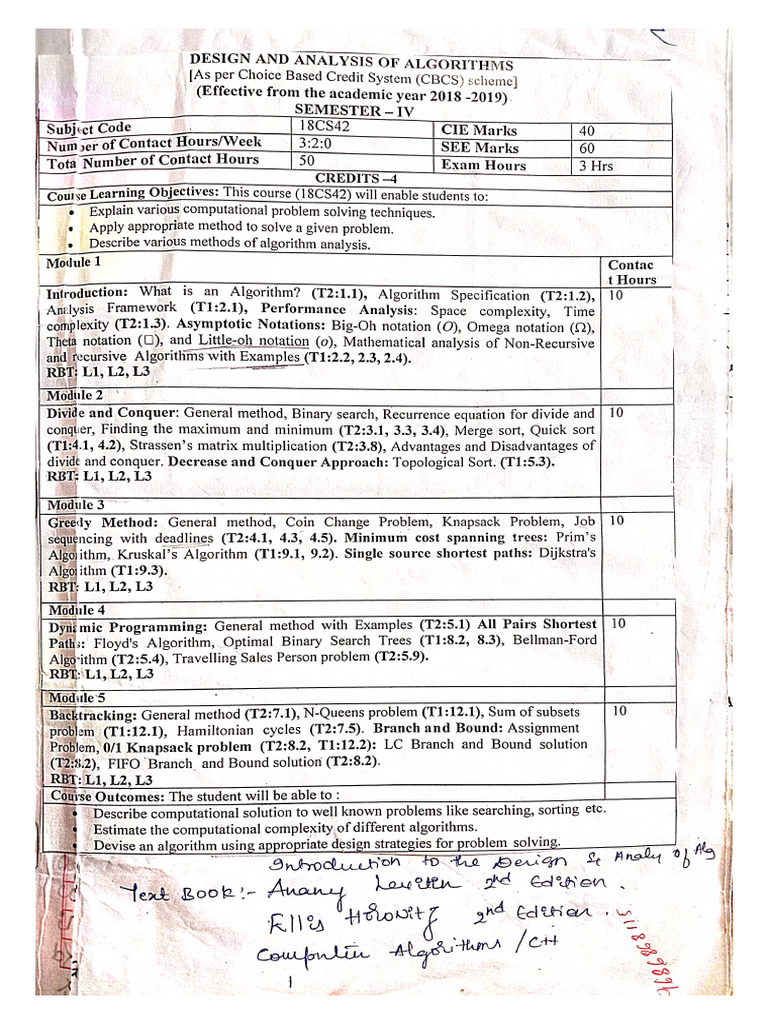 DESIGN AND ANALYSIS OF ALGORITHMS
[As per Choice Based Credit System (CBCS) scheme]
(Effective from the academic year 2018 -2019)
SEMESTER – IV
Subject Code 18CS42 CIE Marks 40
Number of Contact Hours/Week 3:2:0 SEE Marks 60
Total Number of Contact Hours 50 Exam Hours 3 Hrs
CREDITS –4
Course Learning Objectives: This course (18CS42) will enable students to:
• Explain various computational problem solving techniques.
• Apply appropriate method to solve a given problem.
• Describe various methods of algorithm analysis.
Module 1 Contac
t Hours
Introduction: What is an Algorithm? (T2:1.1), Algorithm Specification (T2:1.2), 10
Analysis Framework (T1:2.1), Performance Analysis: Space complexity, Time
complexity (T2:1.3). Asymptotic Notations: Big-Oh notation (O), Omega notation (Ω),
Theta notation (□), and Little-oh notation (o), Mathematical analysis of Non-Recursive
and recursive Algorithms with Examples (T1:2.2, 2.3, 2.4).
RBT: L1, L2, L3
Module 2
Divide and Conquer: General method, Binary search, Recurrence equation for divide and 10
conquer, Finding the maximum and minimum (T2:3.1, 3.3, 3.4), Merge sort, Quick sort
(T1:4.1, 4.2), Strassen's matrix multiplication (T2:3.8), Advantages and Disadvantages of
divide and conquer. Decrease and Conquer Approach: Topological Sort. (T1:5.3).
RBT: L1, L2, L3
Module 3
Greedy Method: General method, Coin Change Problem, Knapsack Problem, Job 10
sequencing with deadlines (T2:4.1, 4.3, 4.5). Minimum cost spanning trees: Prim's
Algorithm, Kruskal's Algorithm (T1:9.1, 9.2). Single source shortest paths: Dijkstra's
Algorithm (T1:9.3).
RBT: L1, L2, L3
Module 4
Dynamic Programming: General method with Examples (T2:5.1) All Pairs Shortest 10
Paths: Floyd's Algorithm, Optimal Binary Search Trees (T1:8.2, 8.3), Bellman-Ford
Algorithm (T2:5.4), Travelling Sales Person problem (T2:5.9).
RBT: L1, L2, L3
Module 5
Backtracking: General method (T2:7.1), N-Queens problem (T1:12.1), Sum of subsets 10
problem (T1:12.1), Hamiltonian cycles (T2:7.5). Branch and Bound: Assignment
Problem, 0/1 Knapsack problem (T2:8.2, T1:12.2): LC Branch and Bound solution
(T2:8.2), FIFO Branch and Bound solution (T2:8.2).
RBT: L1, L2, L3
Course Outcomes: The student will be able to :
• Describe computational solution to well known problems like searching, sorting etc.
• Estimate the computational complexity of different algorithms.
• Devise an algorithm using appropriate design strategies for problem solving.
Introduction to the Design & Analy of Alg
Text Book:- Anany Levitin 2nd Edition.
Ellis Horowitz 2nd Edition.
Computer Algorithms /C++